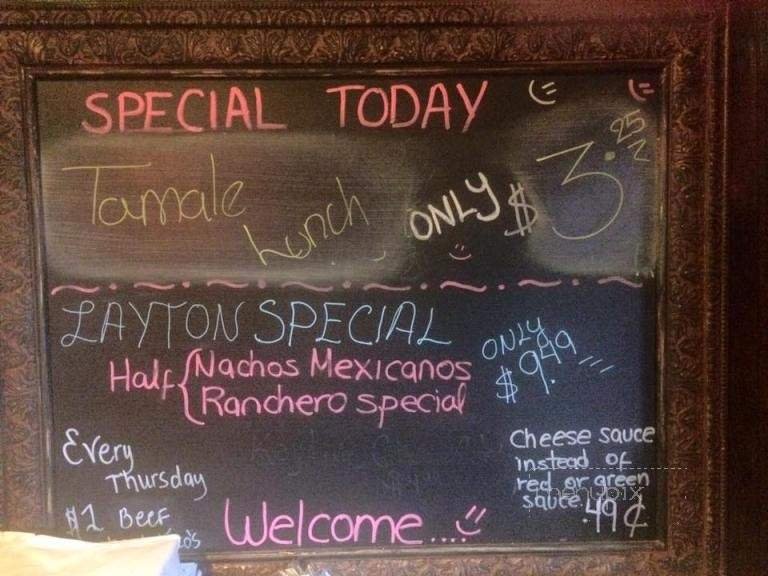 SPECIAL TODAY
Tamale Lunch ONLY $3.25
LAYTON SPECIAL
ONLY $9.49
Half { Nachos Mexicanos
Ranchero special
Every
Thursday
$1 Beef
Cheese sauce
instead of
red or green
sauce .49¢
Welcome....
menupix